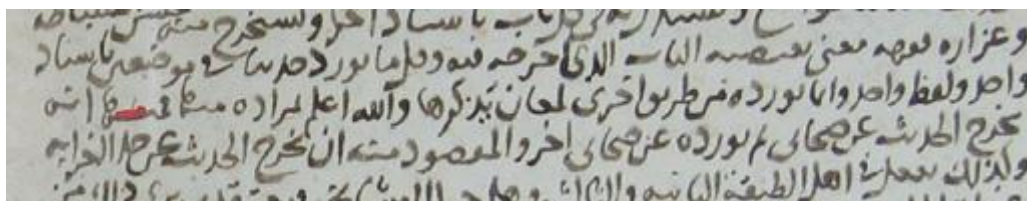 في كل باب باسناد اخر ويستخرج منه
وغزاره فقهه معنى يقتضيه الباب الذى اخرجه فيه وقل ما يورد حديثا في موضعين باسناد
واحد ولفظ واحد وانما يورده من طريق اخرى لمعان نذكرها والله اعلم بمراده منها فمنها انه
يخرج الحديث عن صحابي ثم يورده عن صحابي اخر والمقصود منه ان يخرج الحديث عن حد الغرابه
وكذلك يفعل في اهل الطبقة الثانيه والثالثه وهلم جرا